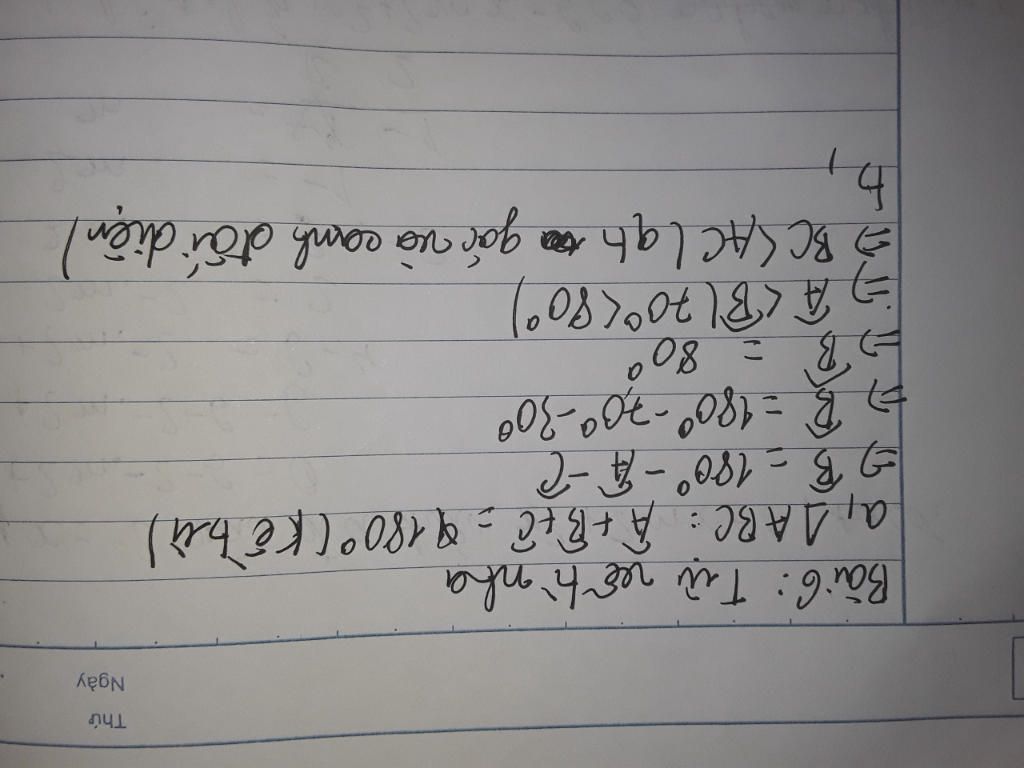 Thứ
Ngày
Bài 6: Tự vẽ hình nha
a, ΔABC: Â + B̂ + Ĉ = 180° (kề bù)
=) B̂ = 180° - Â - Ĉ
=) B̂ = 180° - 70° - 30°
=) B̂ = 80°
=) Â < B̂ (70° < 80°)
=) BC < AC (qh góc và cạnh đối diện)
b,